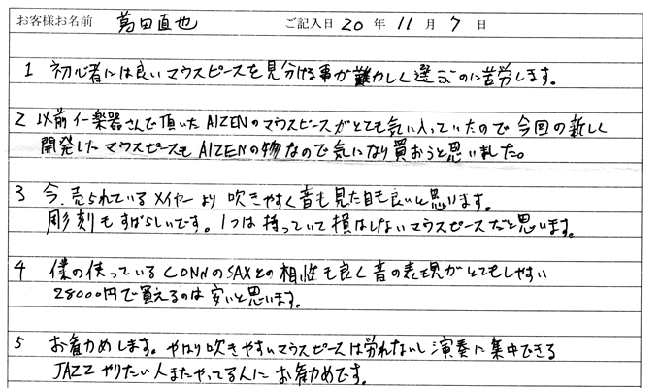 お客様お名前 萬田直也 ご記入日 20 年 11 月 7 日
1 初心者には良いマウスピースを見分ける事が難かしく選ぶのに苦労します。
2 以前イー楽器さんで頂いたAIZENのマウスピースがとても気に入っていたので今回の新しく
開発したマウスピースもAIZENの物なので気になり買おうと思いました。
3 今、売られているメイヤーより吹きやすく音も見た目も良いと思います。
彫刻もすばらしいです。1つは持っていて損はしないマウスピースだと思います。
4 僕の使っているCONNのSAXとの相性も良く音の表現がとてもしやすい
28000円で買えるのは安いと思います。
5 お勧めします。やはり吹きやすいマウスピースは労れないし演奏に集中できる
JAZZやりたい人またやってる人にお勧めです。